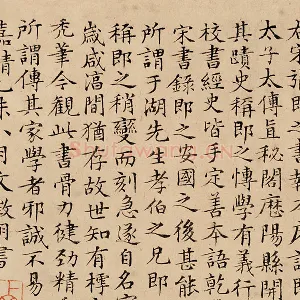 太子太傅直秘閣歷陽縣開
其蹟史稱即之博學有義行
校書經史皆手定善本語乾
宋書錄即之安國之後甚能
所謂于湖先生孝伯之兄即
稱即之稍變而刻急遂自名
歲咸淳間猶存故世知有樗
禿筆今觀此書骨力健勁精
所謂傳其家學者邪誠不易